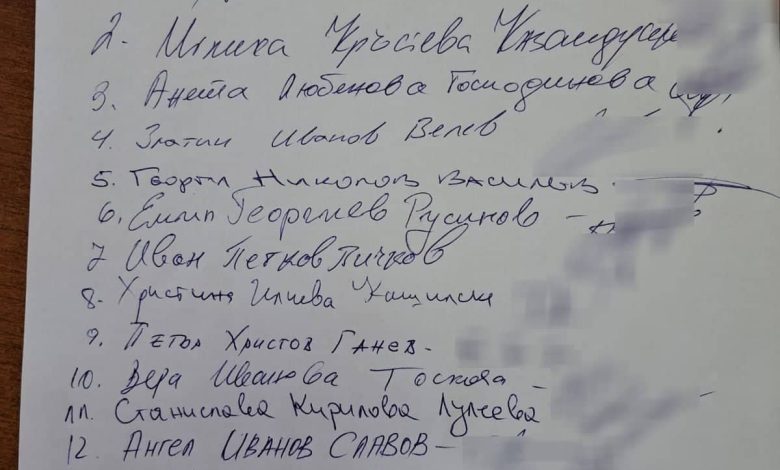 2. Кръстева
3. Анета Любенова Господинова
4. Златин Иванов Велев
5. Георги Николов Василев
6. Емил Георгиев Русинов
7 Иван Петков Пичков
8. Христина Илиева
9. Петър Христов Ганев -
10. Вера Иванова Тоскова -
11. Станислава Кирилова Лулчева
12 Ангел Иванов Славов -